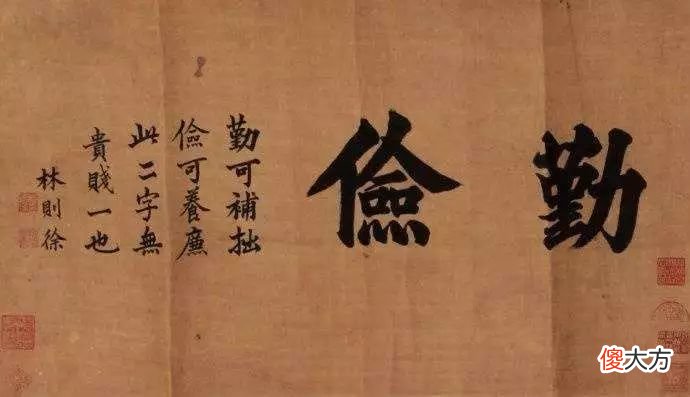 勤儉
勤可補拙
儉可養廉
此二字無
貴賤一也
林則徐
傻大方